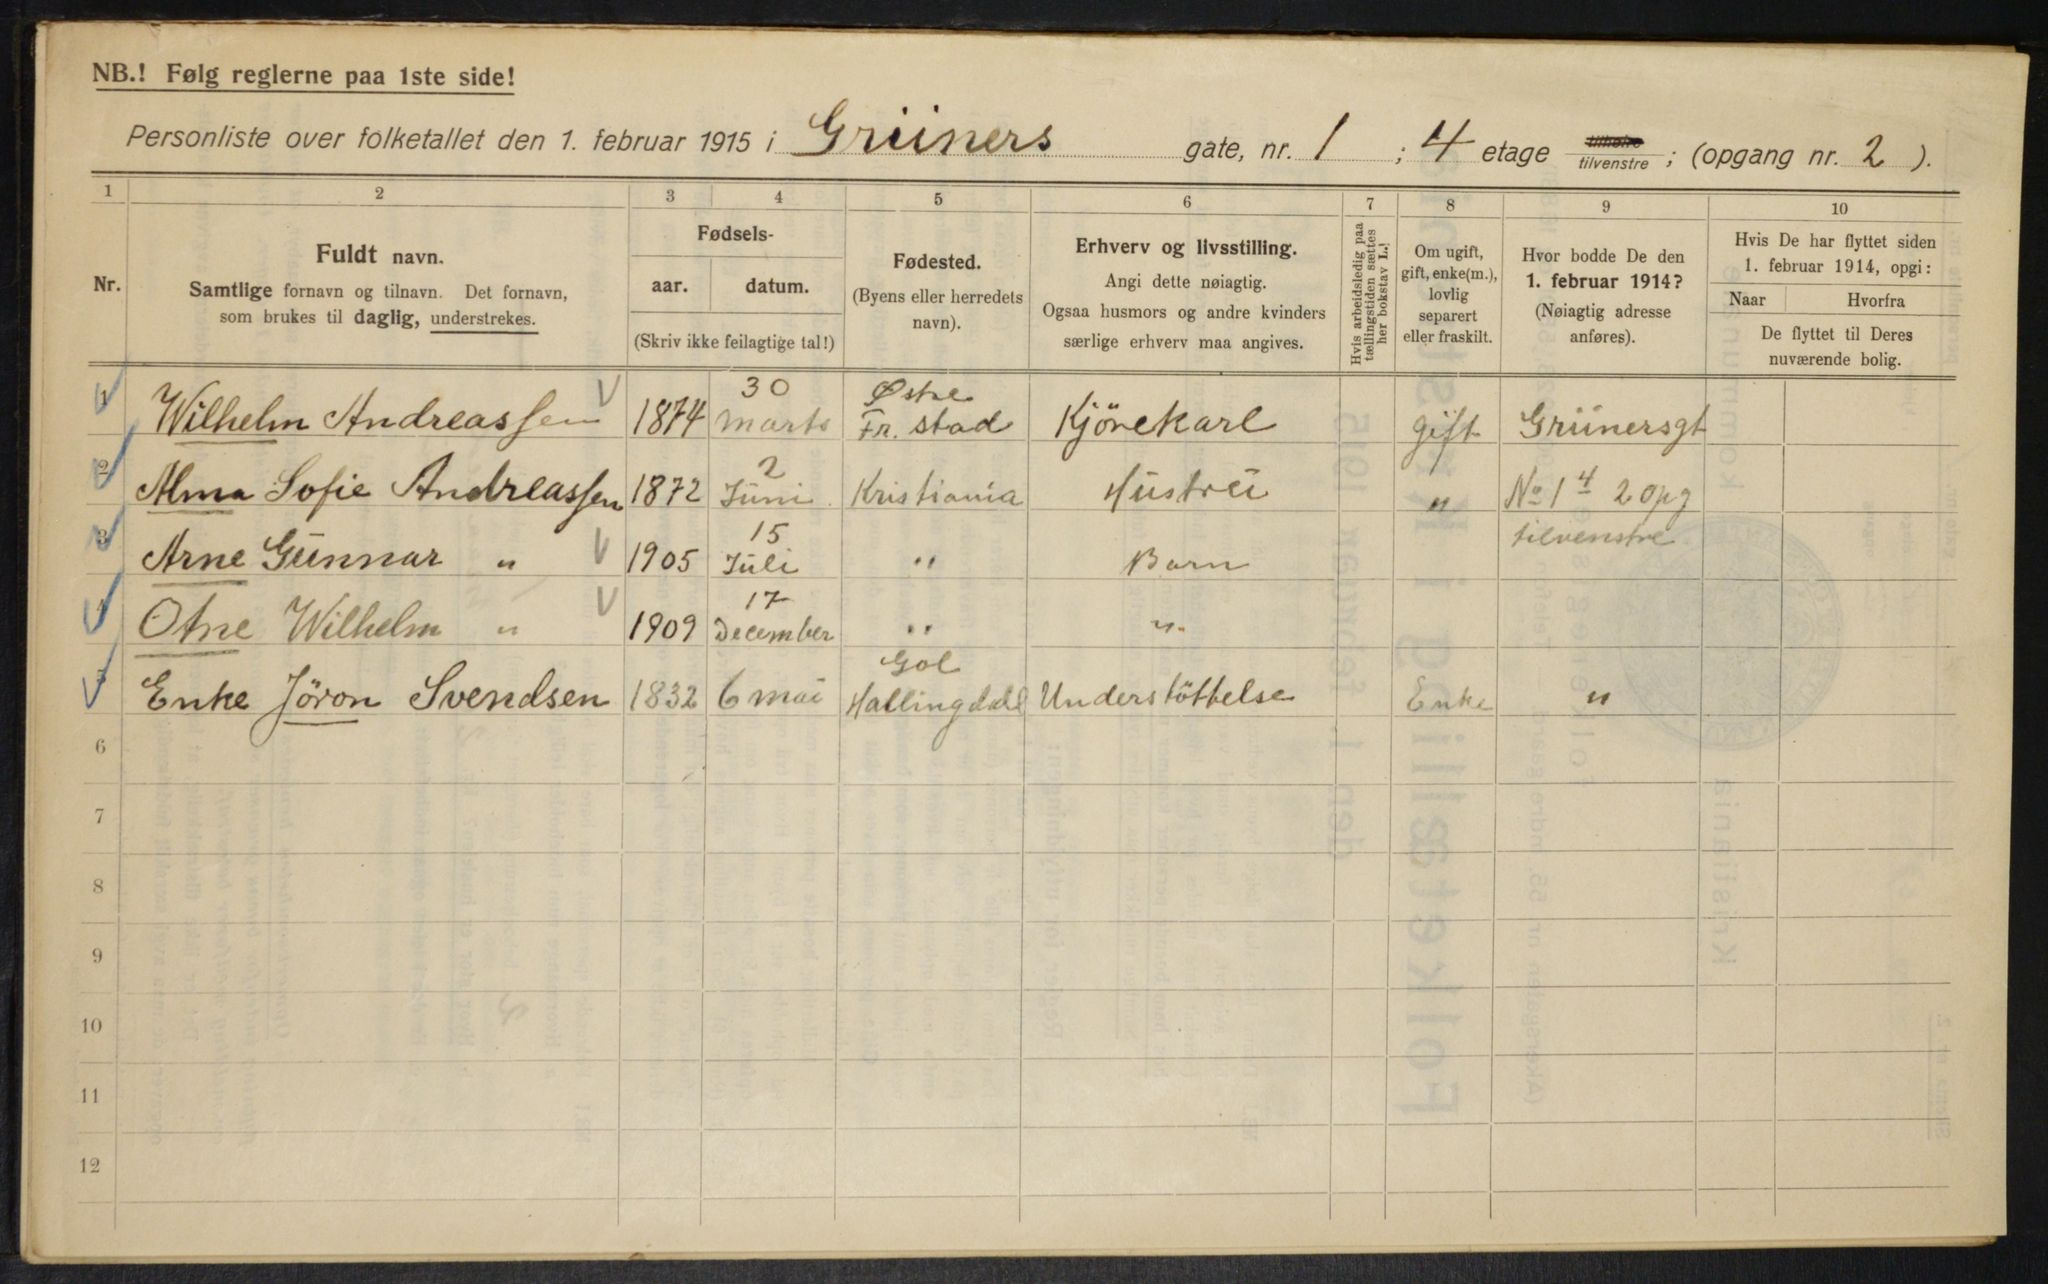 NB.! Følg reglerne paa 1ste side!
Personliste over folketallet den 1. februar 1915 i Grüners gate, nr. 1 ; 4 etage tilhøire tilvenstre ; (opgang nr. 2 ).
1 2 3 4 5 6 7 8 9 10
Nr.
Fuldt navn.
Samtlige fornavn og tilnavn. Det fornavn,
som brukes til daglig, understrekes.
Fødsels-
aar. datum.
(Skriv ikke feilagtige tal!)
Fødested.
(Byens eller herredets
navn).
Erhverv og livsstilling.
Angi dette nøiagtig.
Ogsaa husmors og andre kvinders
særlige erhverv maa angives.
Hvis arbeidsledig paa
tællingstiden sættes
her bokstav L.!
Om ugift,
gift, enke(m.),
lovlig
separert
eller fraskilt.
Hvor bodde De den
1. februar 1914?
(Nøiagtig adresse
anføres).
Hvis De har flyttet siden
1. februar 1914, opgi:
Naar Hvorfra
De flyttet til Deres
nuværende bolig.
1 Wilhelm Andreassen 1874 30 Marts Østre Fr. stad Kjörekarl gift Grünersgt
2 Alma Sofie Andreassen 1872 2 Jüni Kristiania Hüstrü " No 1 4 2 opg
tilvenstre
3 Arne Günnar " 1905 15 Jüli " Barn
4 Otne Wilhelm " 1909 17 December " "
5 Enke Jöron Svendsen 1832 6 mai Gol Hallingdahl Understöttelse Enke "
6
7
8
9
10
11
12